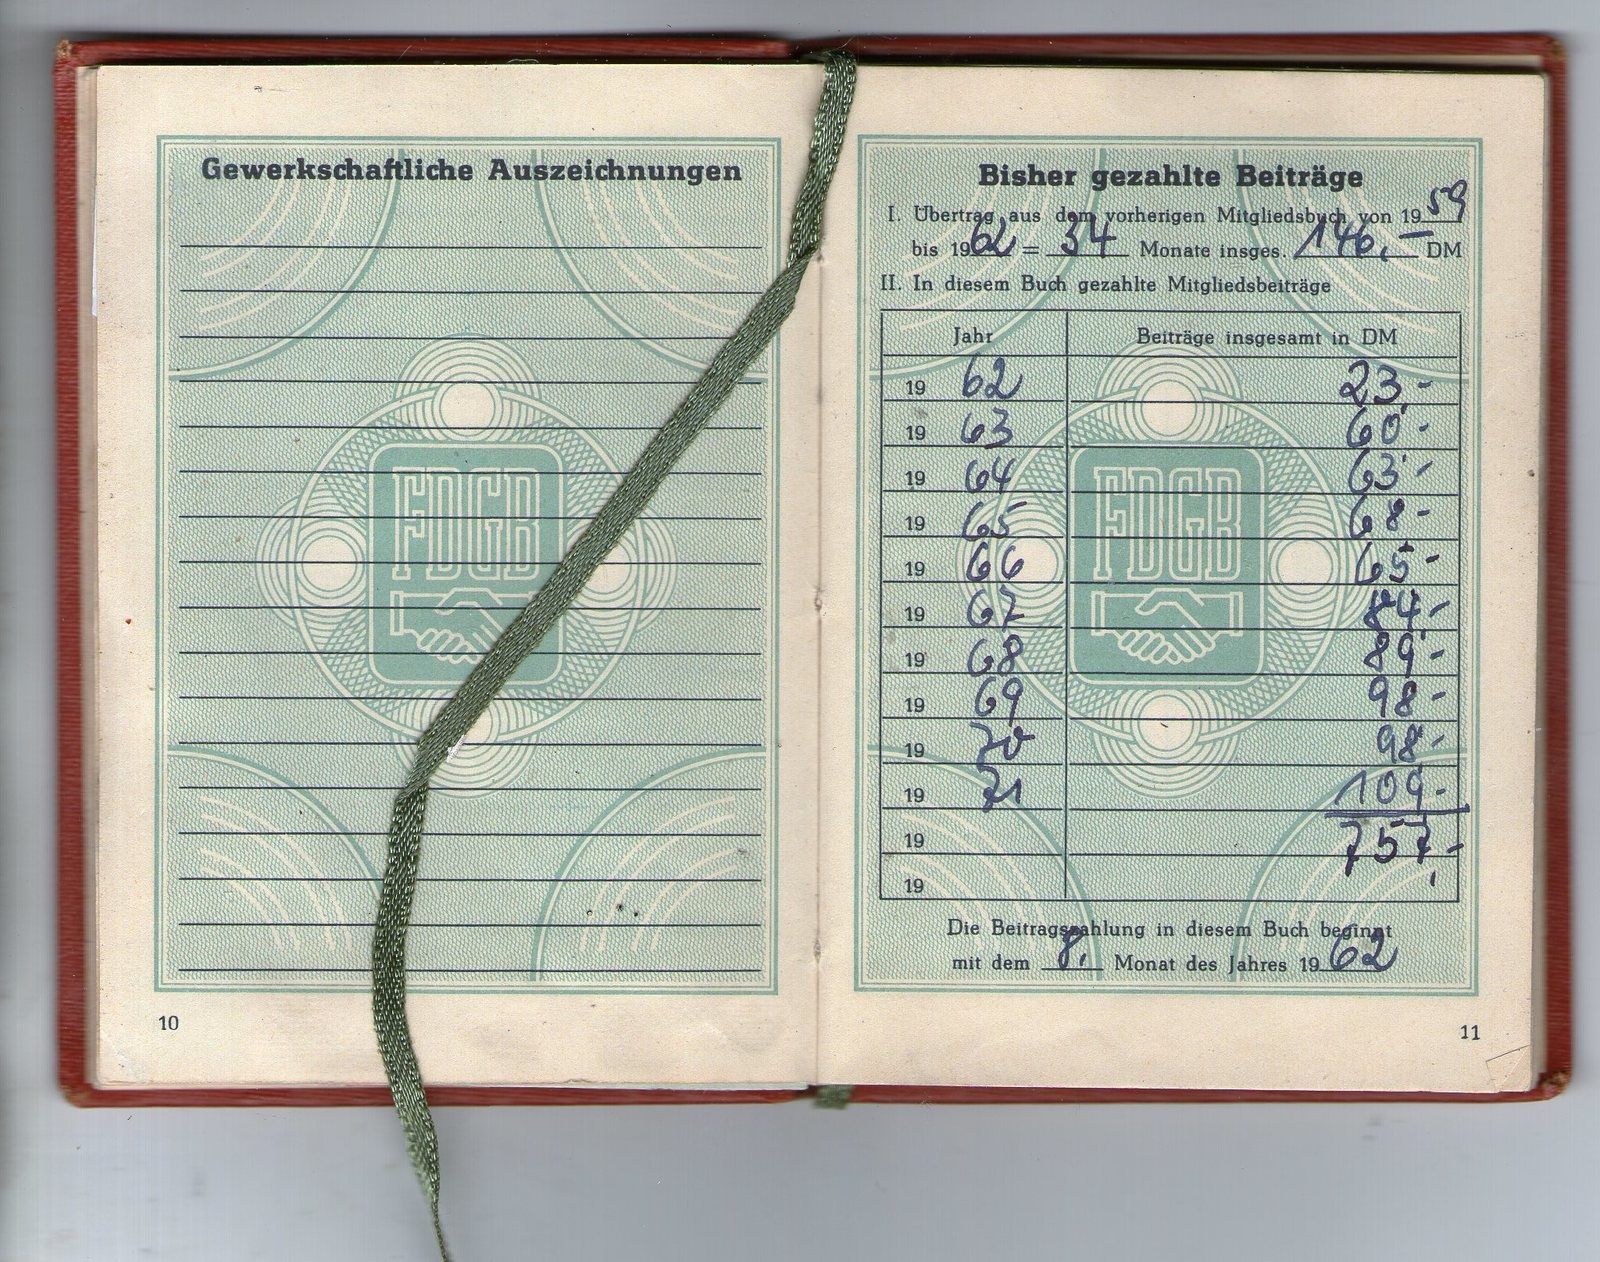 Gewerkschaftliche Auszeichnungen
FDGB
10
Bisher gezahlte Beiträge
I. Übertrag aus dem vorherigen Mitgliedsbuch von 1959
bis 1962 = 34 Monate insges. 146,— DM
II. In diesem Buch gezahlte Mitgliedsbeiträge
Jahr Beiträge insgesamt in DM
19 62 23,-
19 63 60,-
19 64 63,-
19 65 68,-
19 66 65,-
19 67 84,-
19 68 89,-
19 69 98,-
19 70 98,-
19 71 109,-
19 757,-
19
FDGB
Die Beitragszahlung in diesem Buch beginnt
mit dem 8. Monat des Jahres 1962
11